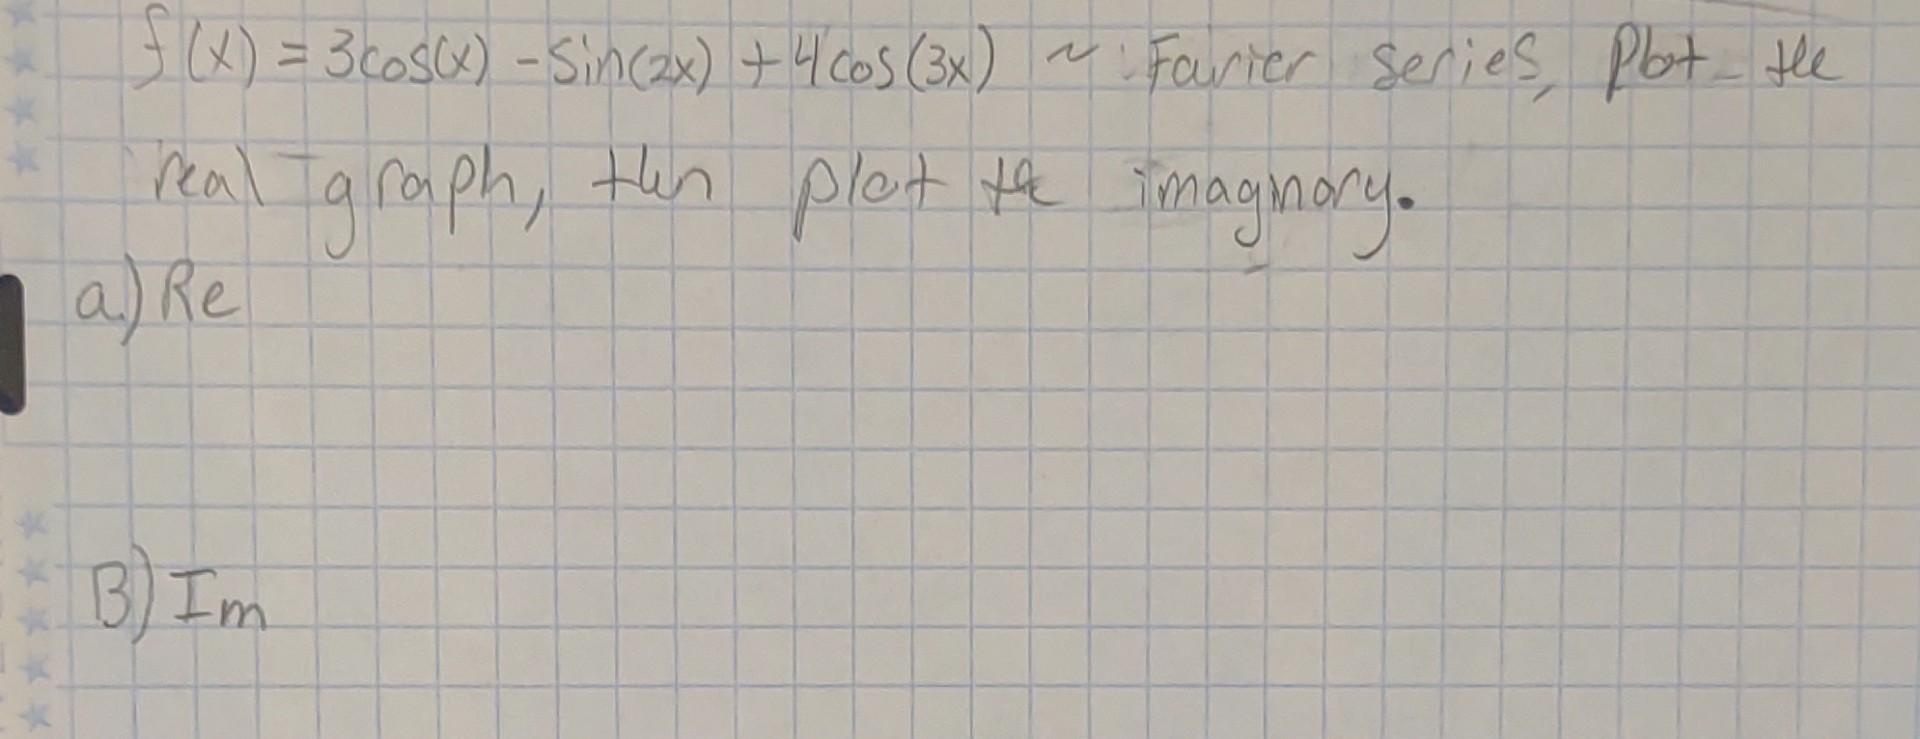 f(x) = 3cos(x) - Sin(2x) + 4cos(3x) ~ Farier series, Plot the
real graph, then plot the imagnary.
a.) Re
B) Im